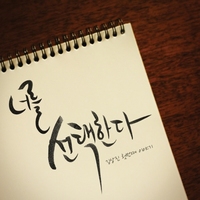 너를
선택한다